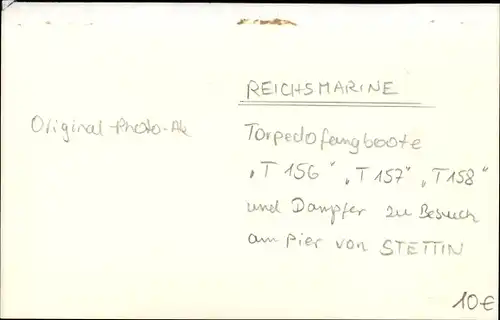 REICHSMARINE
Original-Photo-Ak
Torpedofangboote
„T 156" „T 157" „T 158"
und Dampfer zu Besuch
am Pier von STETTIN
10€